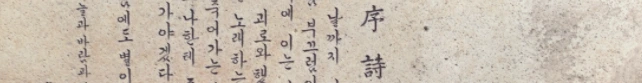 序詩
날까지
부끄럼
에 이는
괴로와 했
노래하는
죽어가는
나한테
가야겠다
에도 별이